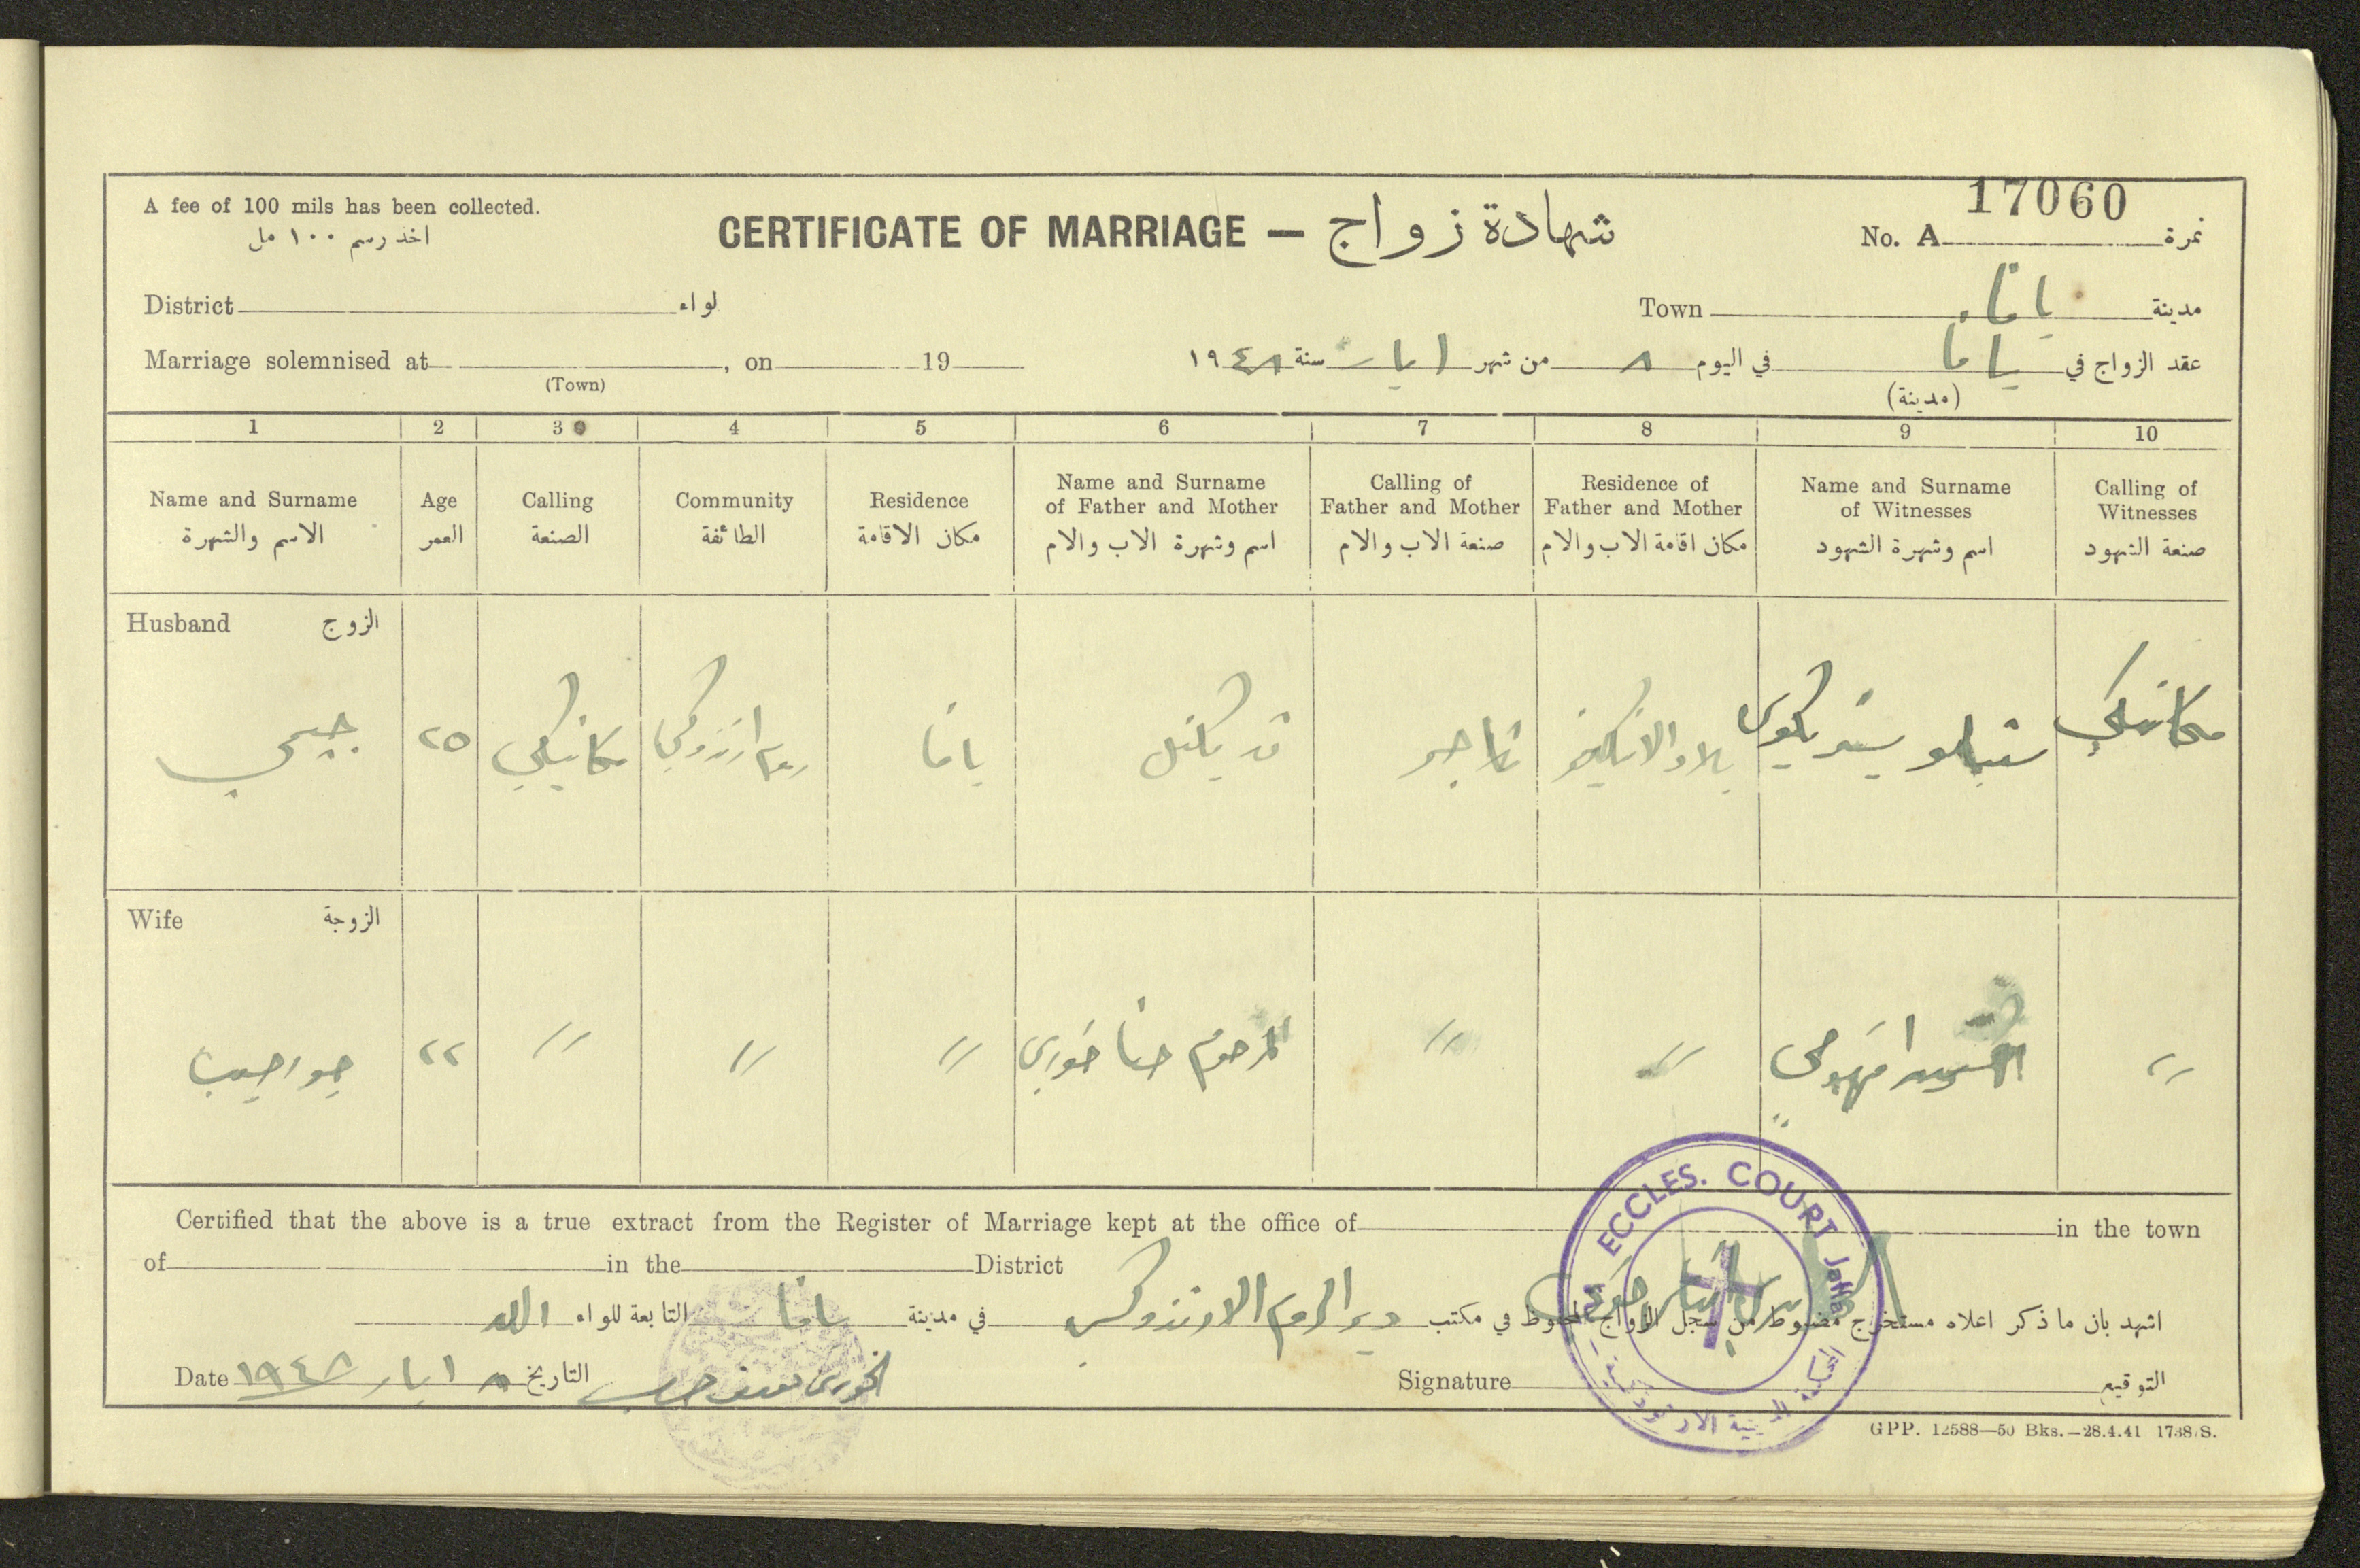 17060
A fee of 100 mils has been collected.
اخذ رسم ١٠٠ مل
CERTIFICATE OF MARRIAGE — شهادة زواج
No. A نمرة
District لواء
Town يافا مدينة
Marriage solemnised at , on 19
(Town)
عقد الزواج في يافا في اليوم ٨ من شهر ايار سنة ١٩٤٨
(مدينة)
1 2 3 4 5 6 7 8 9 10
Name and Surname
الاسم والشهرة
Age
العمر
Calling
الصنعة
Community
الطائفة
Residence
مكان الاقامة
Name and Surname
of Father and Mother
اسم وشهرة الاب والام
Calling of
Father and Mother
صنعة الاب والام
Residence of
Father and Mother
مكان اقامة الاب والام
Name and Surname
of Witnesses
اسم وشهرة الشهود
Calling of
Witnesses
صنعة الشهود
Husband الزوج
جيمي
٢٥
مكانيكي
روم ارتذوكس
يافا
تاجر
بلاد الانكليز
مكانيكي
Wife الزوجة
٢٢
"
"
"
المرحوم حنا خوري
"
"
"
Certified that the above is a true extract from the Register of Marriage kept at the office of in the town
of in the District
اشهد بان ما ذكر اعلاه مستخرج مضبوط من سجل الزواج المحفوظ في مكتب دير الروم الارتذوكس في مدينة يافا التابعة للواء اللد
Date ٨ ايار ١٩٤٨ التاريخ
الخوري
Signature التوقيع
ECCLES. COURT Jaffa
GPP. 12588—50 Bks.—28.4.41 1738/S.